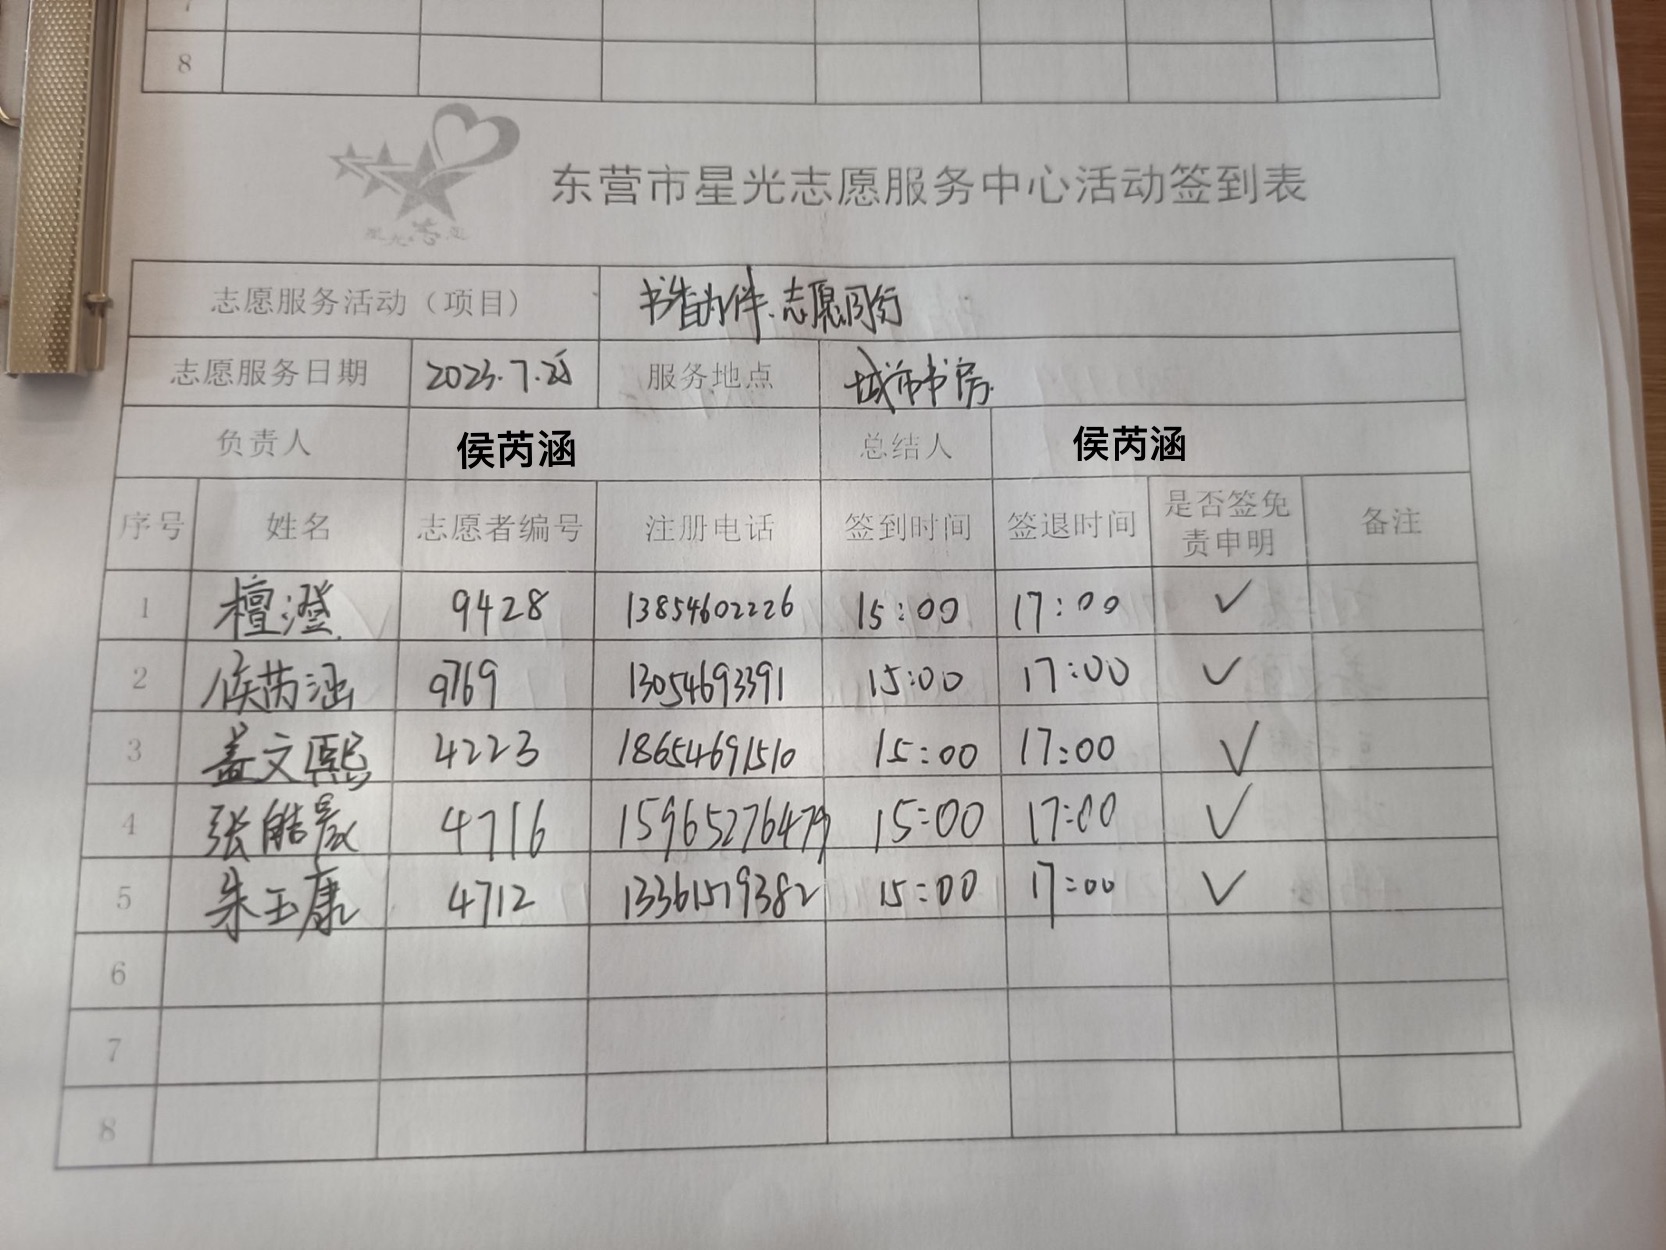 8
星光志愿
东营市星光志愿服务中心活动签到表
志愿服务活动（项目） 书香为伴.志愿同行
志愿服务日期 2023.7. 服务地点 城市书房.
负责人 侯芮涵 总结人 侯芮涵
序号 姓名 志愿者编号 注册电话 签到时间 签退时间 是否签免责申明 备注
1 檀澄 9428 13854602226 15:00 17:00 ✓
2 侯芮涵 9769 13054693391 15:00 17:00 ✓
3 盖文熙 4223 18654691510 15:00 17:00 ✓
4 张皓晟 4716 15965276479 15:00 17:00 ✓
5 朱玉康 4712 13361519382 15:00 17:00 ✓
6
7
8